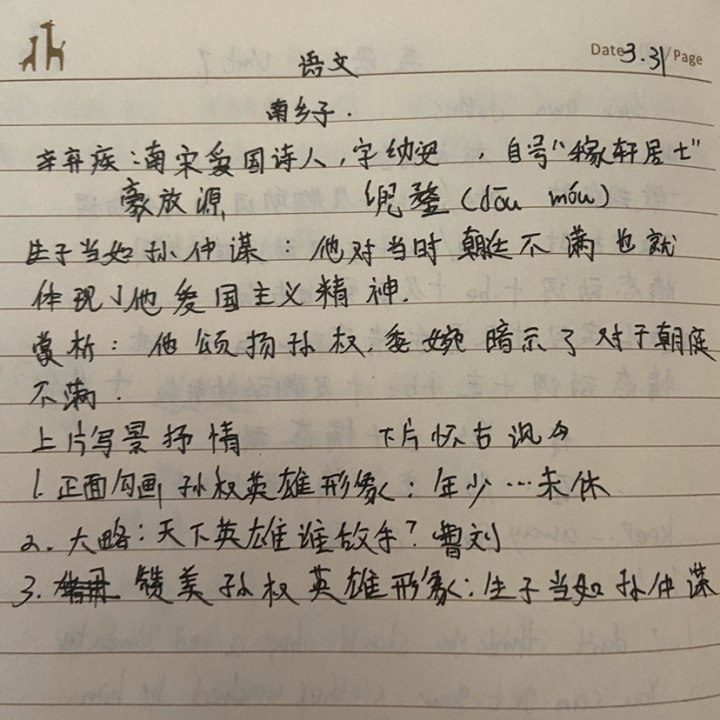 Date 3.31/Page
语文
南乡子.
辛弃疾:南宋爱国诗人,字幼安,自号"稼轩居士"
豪放源 兜鍪(dōu móu)
生子当如孙仲谋:他对当时朝廷不满也就
体现了他爱国主义精神.
赏析:他颂扬孙权,委婉暗示了对于朝廷
不满.
上片写景抒情 下片怀古讽今
1.正面勾画孙权英雄形象:年少…未休
2.大略:天下英雄谁敌手?曹刘
3.赞美孙权英雄形象:生子当如孙仲谋